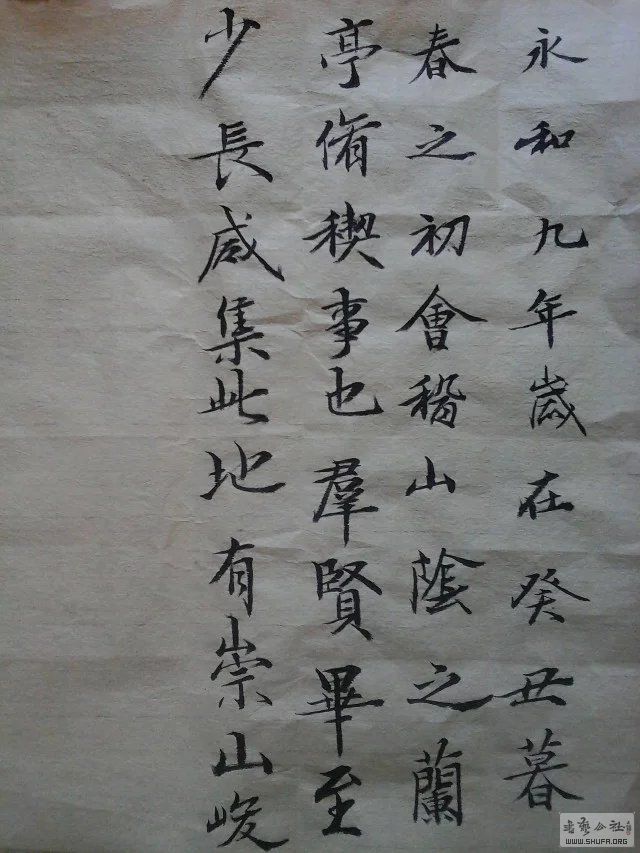 永和九年歲在癸丑暮
春之初會稽山陰之蘭
亭脩稧事也羣賢畢至
少長咸集此地有崇山峻
WWW.SHUFA.ORG